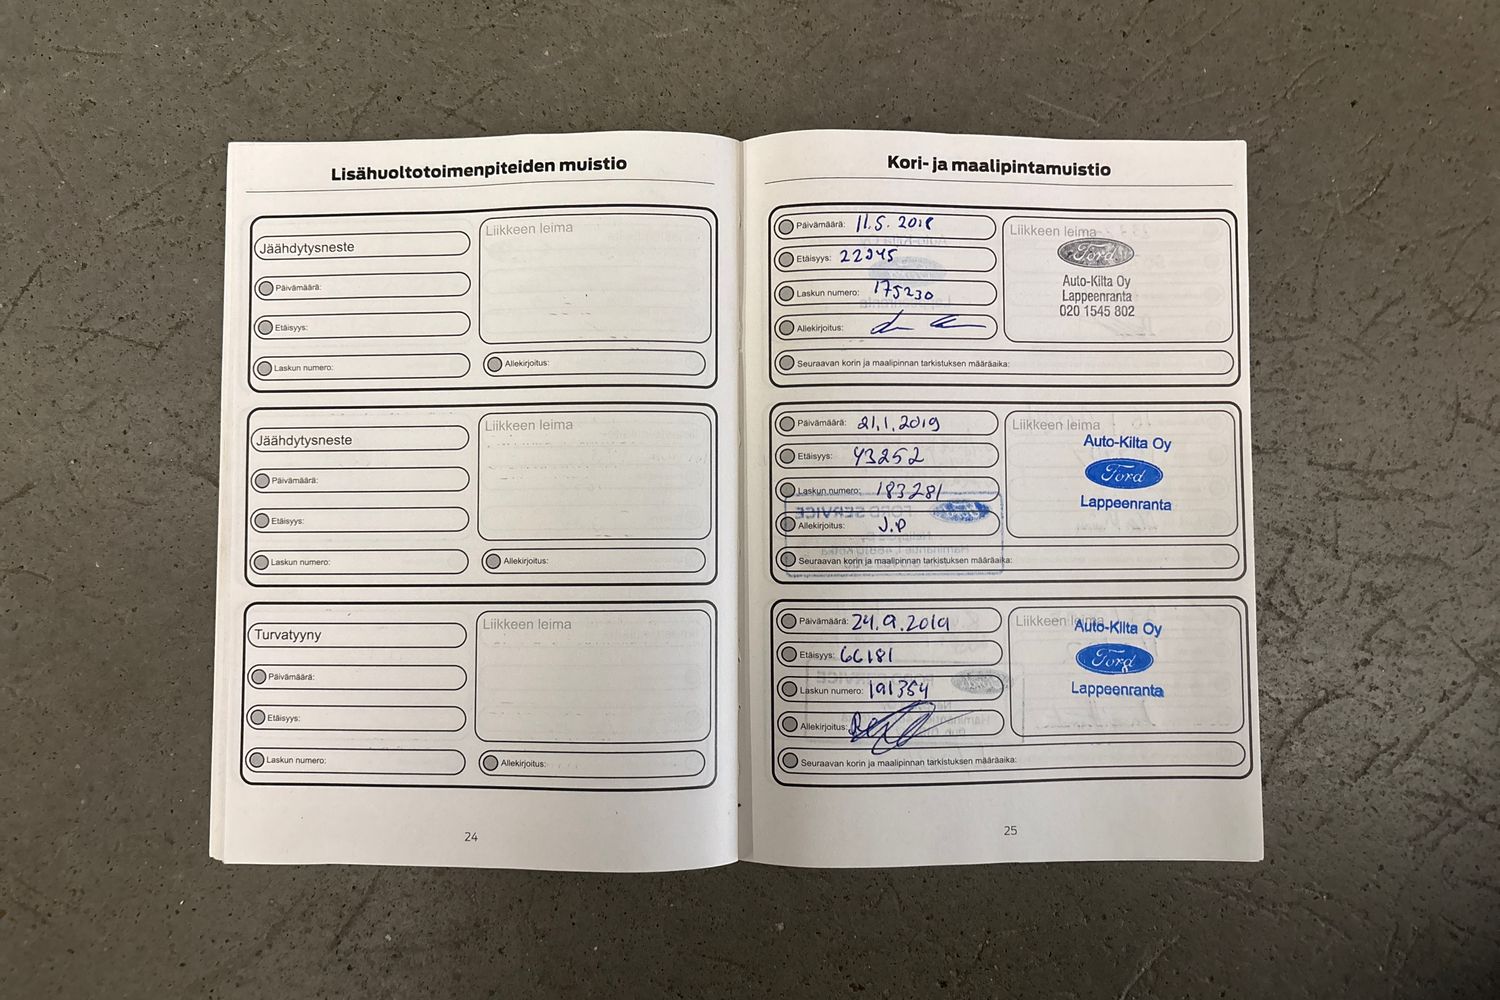 Lisähuoltotoimenpiteiden muistio
Jäähdytysneste
Liikkeen leima
Päivämäärä:
Etäisyys:
Laskun numero:
Allekirjoitus:
Jäähdytysneste
Liikkeen leima
Päivämäärä:
Etäisyys:
Laskun numero:
Allekirjoitus:
Turvatyyny
Liikkeen leima
Päivämäärä:
Etäisyys:
Laskun numero:
Allekirjoitus:
24
Kori- ja maalipintamuistio
Päivämäärä: 11.5.2018
Etäisyys: 22945
Laskun numero: 175230
Allekirjoitus:
Liikkeen leima
Ford
Auto-Kilta Oy
Lappeenranta
020 1545 802
Seuraavan korin ja maalipinnan tarkistuksen määräaika:
Päivämäärä: 21.1.2019
Etäisyys: 43252
Laskun numero: 183281
Allekirjoitus: J.P
Liikkeen leima
Auto-Kilta Oy
Ford
Lappeenranta
Seuraavan korin ja maalipinnan tarkistuksen määräaika:
Päivämäärä: 24.9.2019
Etäisyys: 66181
Laskun numero: 191354
Allekirjoitus:
Liikkeen leima
Auto-Kilta Oy
Ford
Lappeenranta
Seuraavan korin ja maalipinnan tarkistuksen määräaika:
25